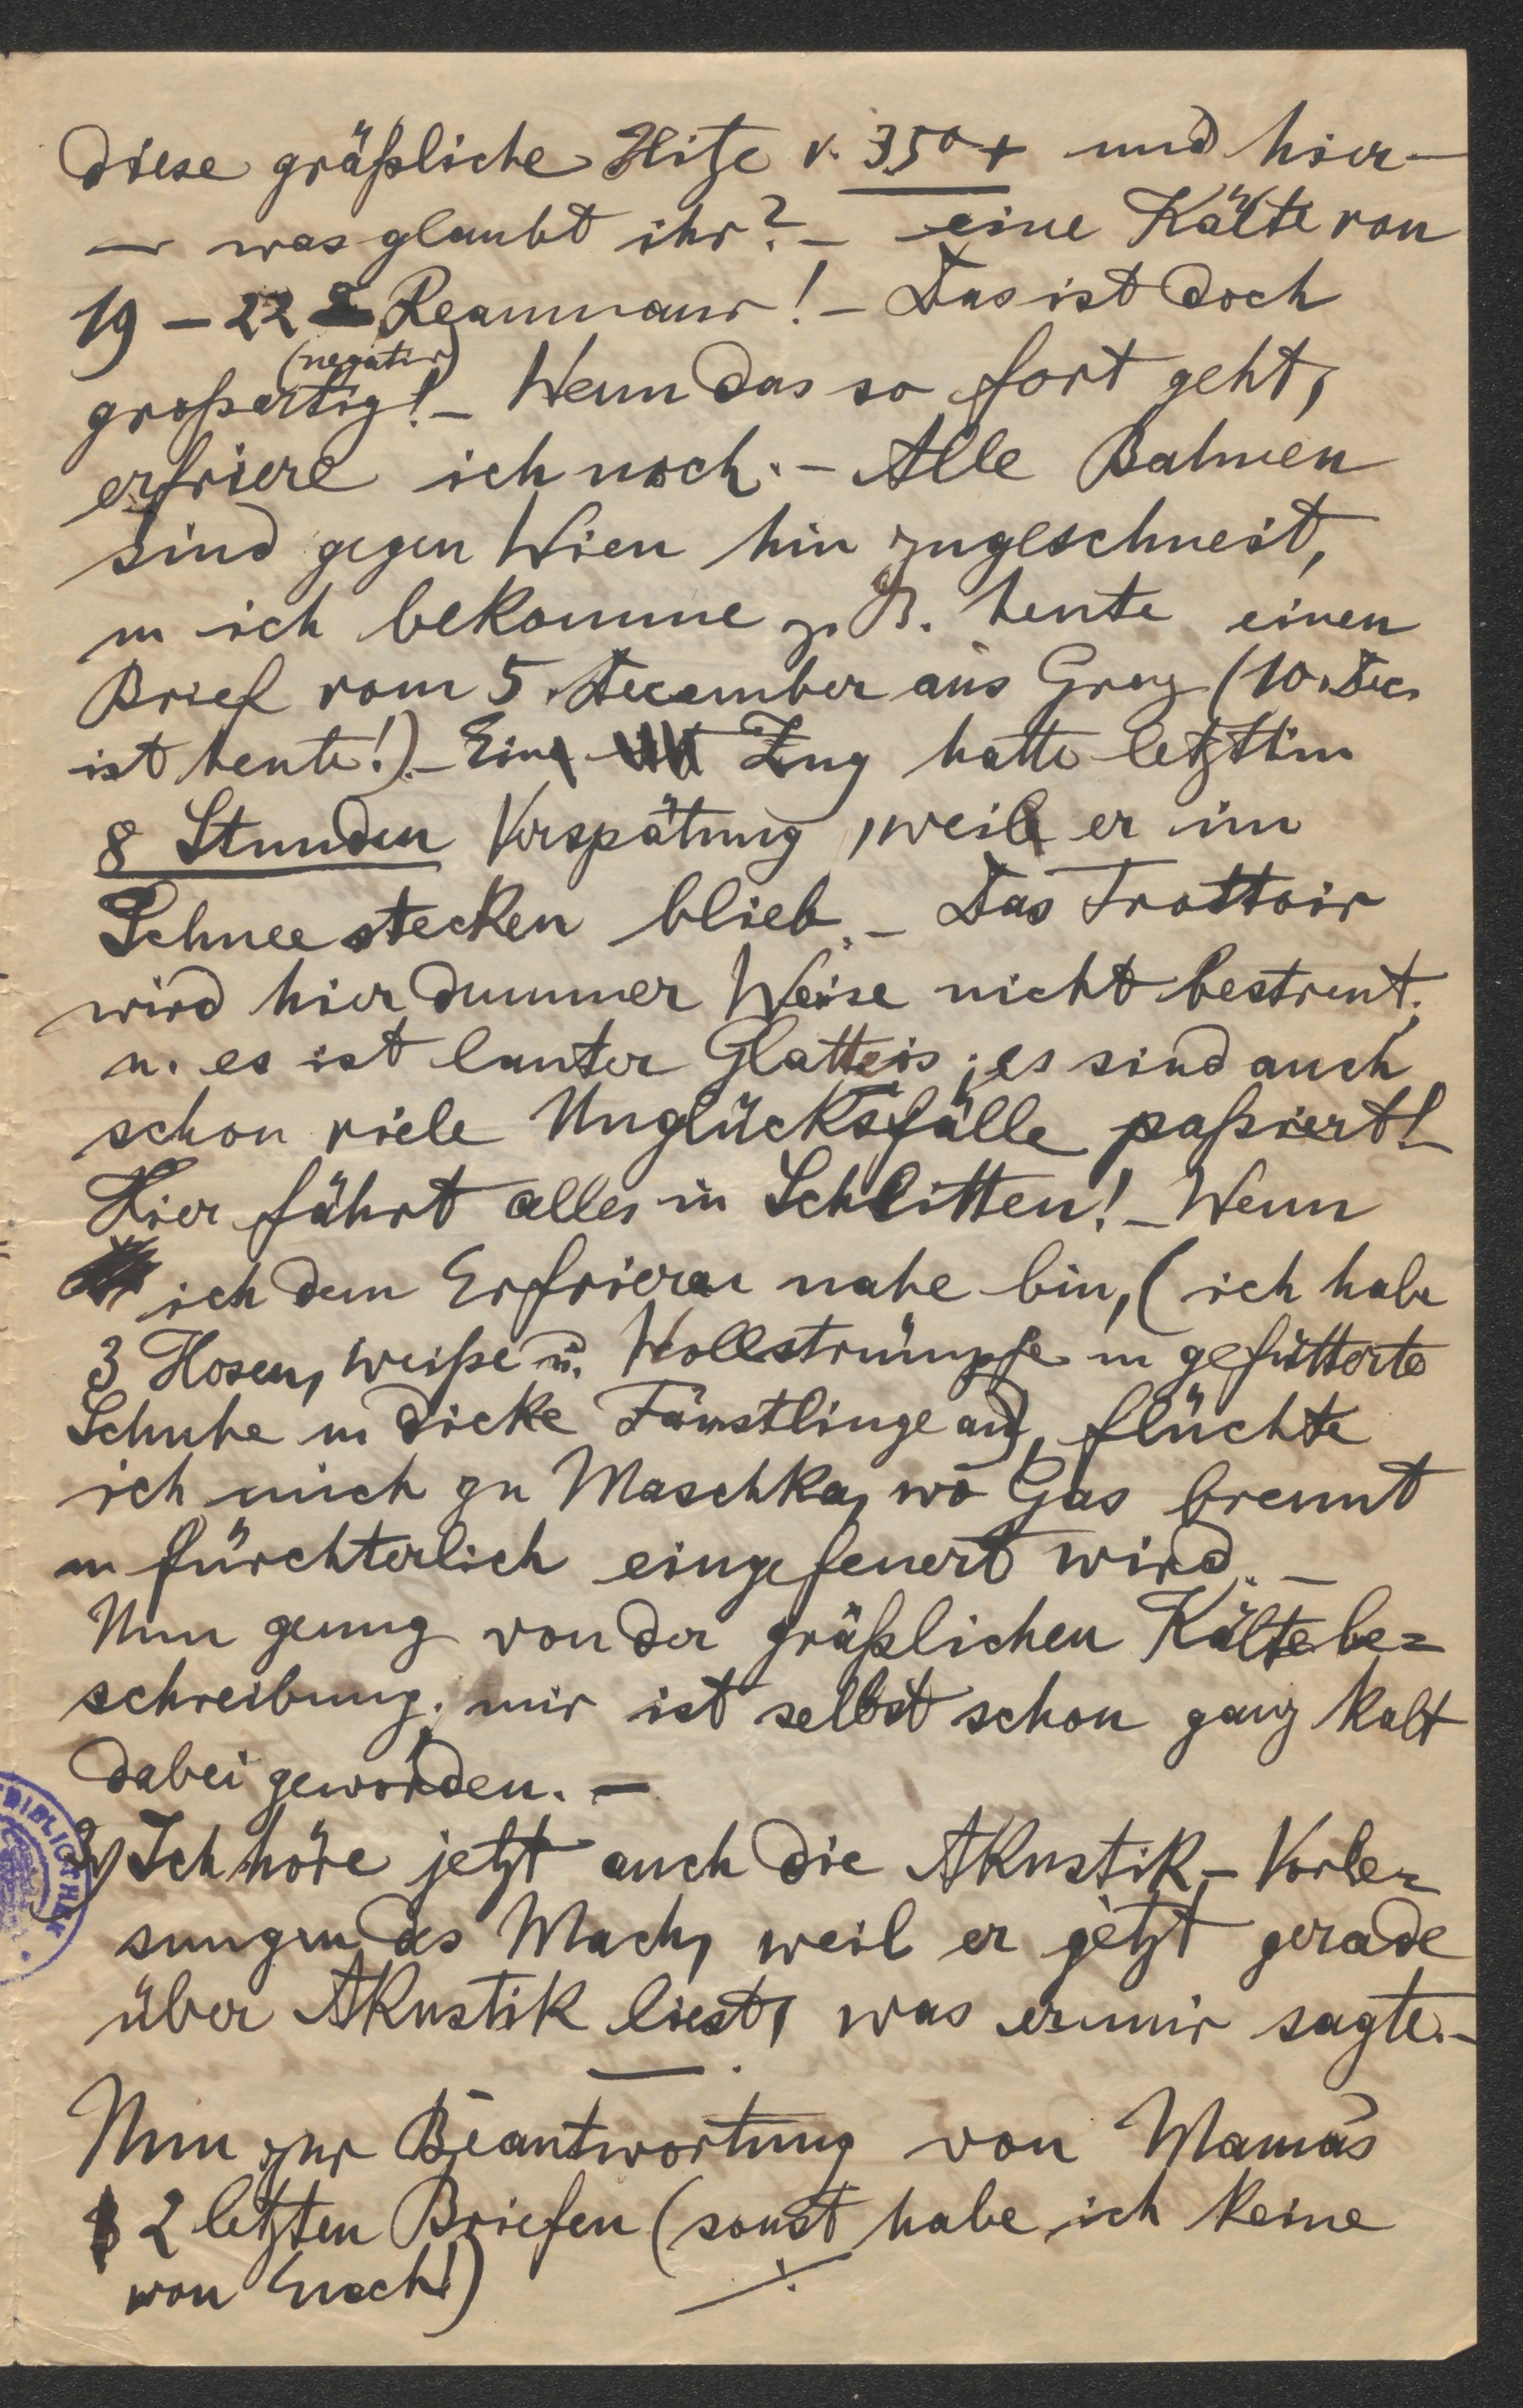 diese gräßliche Hitze v. 35°+ und hier—
— was glaubt ihr? — eine Kälte von
19 – 22 Reaumaur! – Das ist doch
(negativ)
großartig! – Wenn das so fort geht,
erfriere ich noch. – Alle Bahnen
sind gegen Wien hin zugeschneit,
u ich bekomme z. B. heute einen
Brief vom 5. December aus Graz (10. Dec.
ist heute!). – Ein Zug hatte letzthin
8 Stunden Verspätung, weil er im
Schnee stecken blieb. – Das Trottoir
wird hier dummer Weise nicht bestreut,
u. es ist lauter Glatteis; es sind auch
schon viele Unglücksfälle paßiert! –
Hier fährt alles in Schlitten! – Wenn
ich dem Erfrieren nahe bin, (ich habe
3 Hosen, weiße u. Wollstrümpfe u gefütterte
Schuhe u dicke Fäustlinge an), flüchte
ich mich zu Maschka, wo Gas brennt
u fürchterlich eingefeuert wird. –
Nun genug von der gräßlichen Kältebe=
schreibung; mir ist selbst schon ganz kalt
dabei geworden. —
3) Ich höre jetzt auch die Akustik – Vorle=
sungen des Mach, weil er jetzt gerade
über Akustik liest, was er mir sagte. –
Nun zur Beantwortung von Mamas
2 letzten Briefen (sonst habe ich keine
von Euch!)